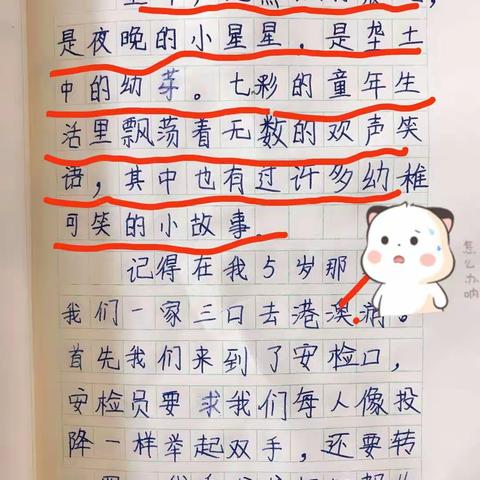 是夜晚的小星星，是垄土
中的幼芽。七彩的童年生
活里飘荡着无数的欢声笑
语，其中也有过许多幼稚
可笑的小故事。
记得在我5岁那
我们一家三口去港澳
首先我们来到了安检口，
安检员要求我们每人像投
降一样举起双手，还要转
怎么办呐